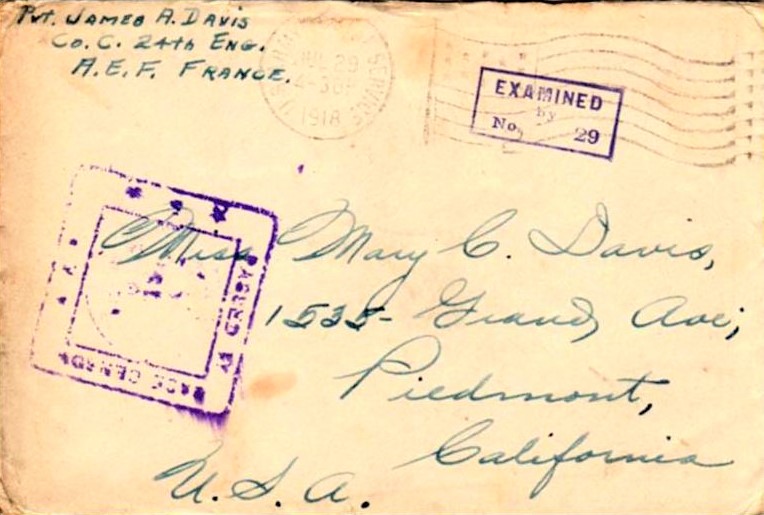 Pvt. James A. Davis
Co. C. 24th Eng.
A.E.F. France.
JUL 29
4-30P
1918
EXAMINED
by
No. 29
Miss Mary C. Davis,
1535- Grand Ave;
Piedmont,
California
U.S.A.
PASSED AS
BASE CENSOR
A.E.F.